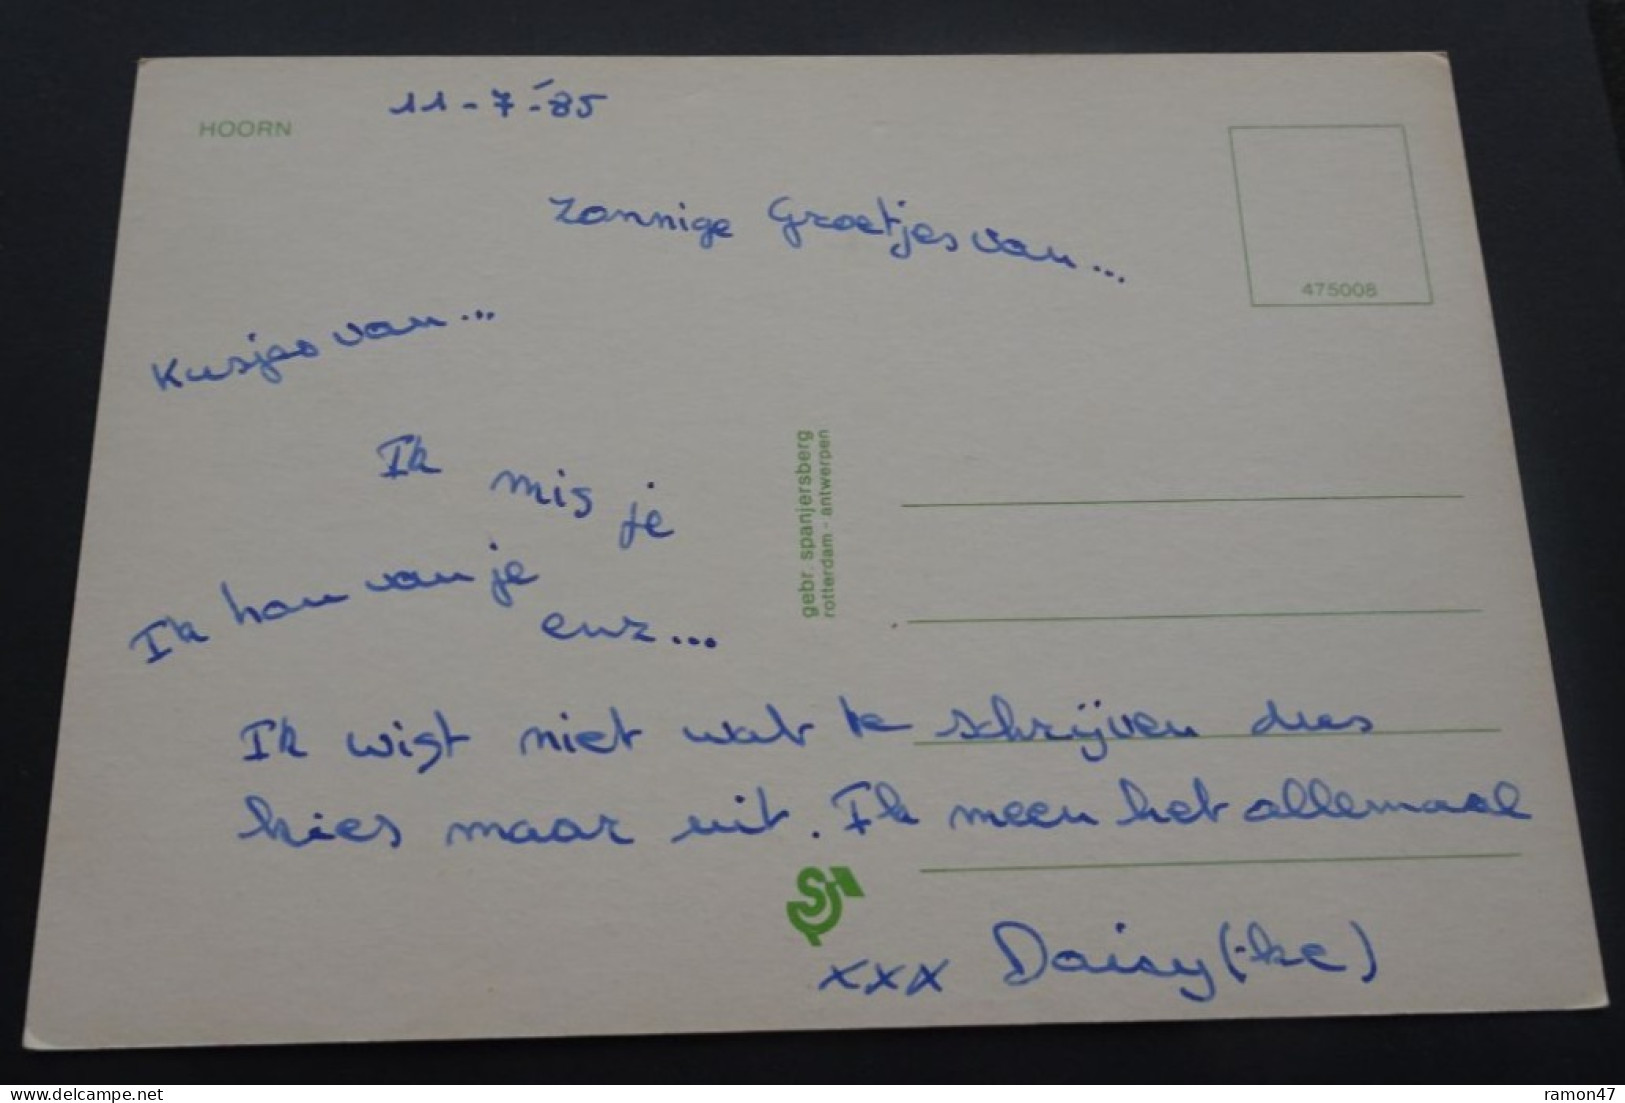 HOORN
11-7-'85
Zonnige Groetjes van...
475008
Kusjes van...
Ik mis je
Ik hou van je
enz...
gebr. spanjersberg
rotterdam - antwerpen
Ik wist niet wat te schrijven dus
kies maar uit. Ik meen het allemaal
xxx Daisy(-ke)
ramon47